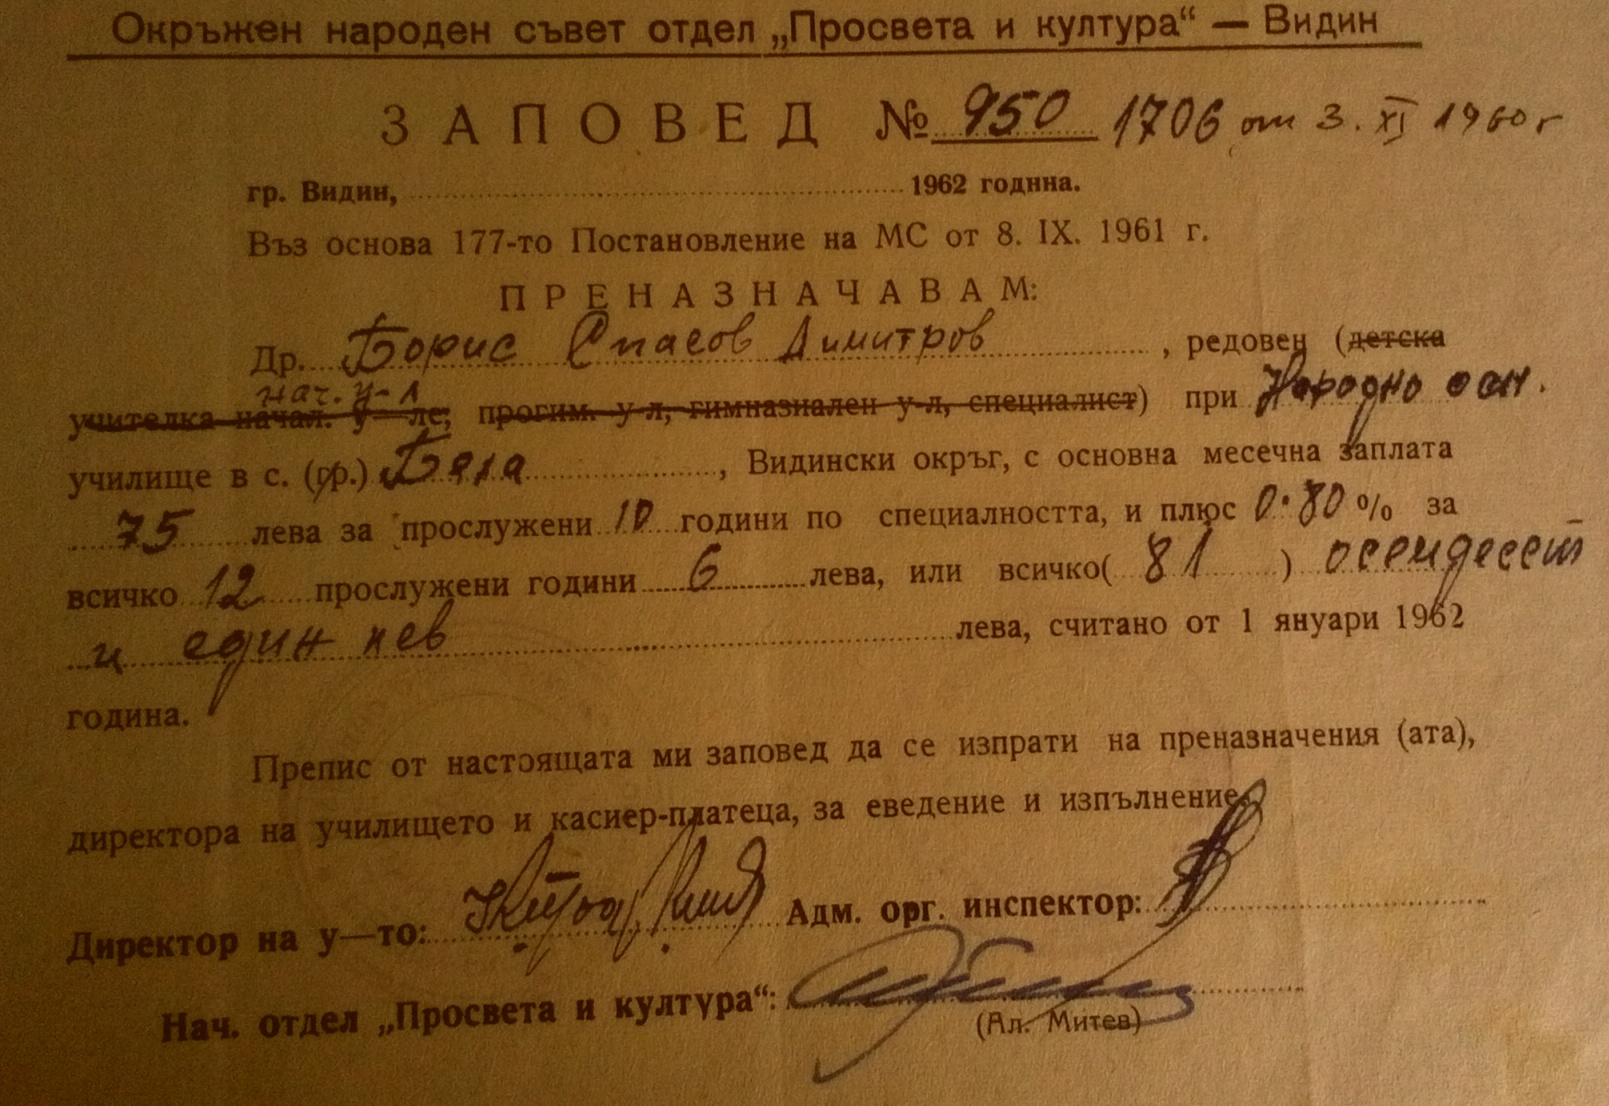 Окръжен народен съвет отдел „Просвета и култура“ — Видин
ЗАПОВЕД № 950 1706 от 3. XI 1960 г
гр. Видин, 1962 година.
Въз основа 177-то Постановление на МС от 8. IX. 1961 г.
ПРЕНАЗНАЧАВАМ:
Др. Борис Спасов Димитров, редовен (детска
нач. у-л
учителка начал. у—ле; прогим. у-л, гимназиален у-л, специалист) при Народно осн.
училище в с. (гр.) Бела, Видински окръг, с основна месечна заплата
75 лева за прослужени 10 години по специалността, и плюс 0.80 % за
всичко 12 прослужени години 6 лева, или всичко( 81 ) осемдесет
и един лев лева, считано от 1 януари 1962
година.
Препис от настоящата ми заповед да се изпрати на преназначения (ата),
директора на училището и касиер-платеца, за еведение и изпълнение.
Директор на у—то: Адм. орг. инспектор:
Нач. отдел „Просвета и култура“:
(Ал. Митев)